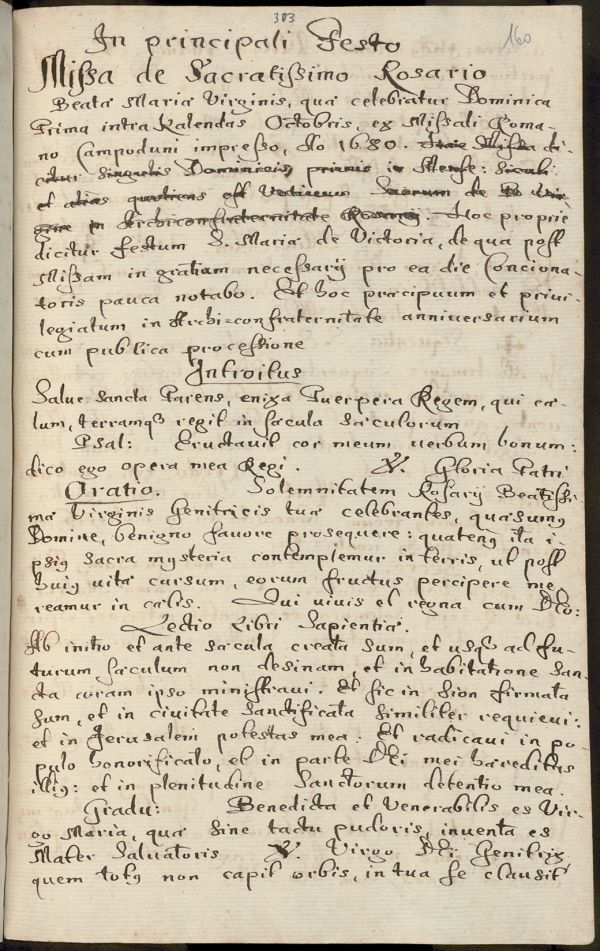 303
160
In principali Festo
Missa de Sacratissimo Rosario
Beatæ Mariæ Virginis, quæ celebratur Dominica
Prima intra Kalendas Octobris, ex Missali Roma-
no Campoduni impresso, Ao 1680. Hæc Missa di-
citur singulis Dominicis primis in Mense: sicuti
et alias quoties est Votivum Sacrum de B. Vir-
gine in Archiconfraternitate Rosarij. Hoc proprie
dicitur Festum S. Mariæ de Victoria, de qua post
Missam in gratiam necessarij pro ea die Conciona-
toris pauca notabo. Et hoc præcipuum et privi-
legiatum in Archi=confraternitate anniversarium
cum publica processione
Introitus
Salue sancta Parens, enixa Puerpera Regem, qui cæ-
lum, terramqȝ regit in sæcula sæculorum
Psal: Eructauit cor meum uerbum bonum:
dico ego opera mea Regi. ℣. Gloria Patri
Oratio. Solemnitatem Rosarij Beatissi-
mæ Virginis Genitricis tuæ celebrantes, quæsumȝ
Domine, benigno fauore prosequere: quatenȝ ita i-
psiȝ sacra mysteria contemplemur in terris, ut post
huiȝ uitæ cursum, eorum fructus percipere me-
reamur in cælis. Qui uiuis et regnas cum Deo:
Lectio Libri Sapientiæ.
Ab initio et ante sæcula creata sum, et usqȝ ad fu-
turum sæculum non desinam, et in habitatione san-
cta coram ipso ministraui. Et sic in Sion firmata
sum, et in ciuitate sanctificata similiter requieui:
et in Jerusalem potestas mea: Et radicaui in po-
pulo honorificato, et in parte Dei mei hæreditas
illiȝ: et in plenitudine Sanctorum detentio mea.
Gradu: Benedicta et Venerabilis es Vir-
go Maria, quæ sine tactu pudoris, inuenta es
Mater Saluatoris ℣. Virgo Dei Genitrix,
quem totȝ non capit orbis, in tua se clausit